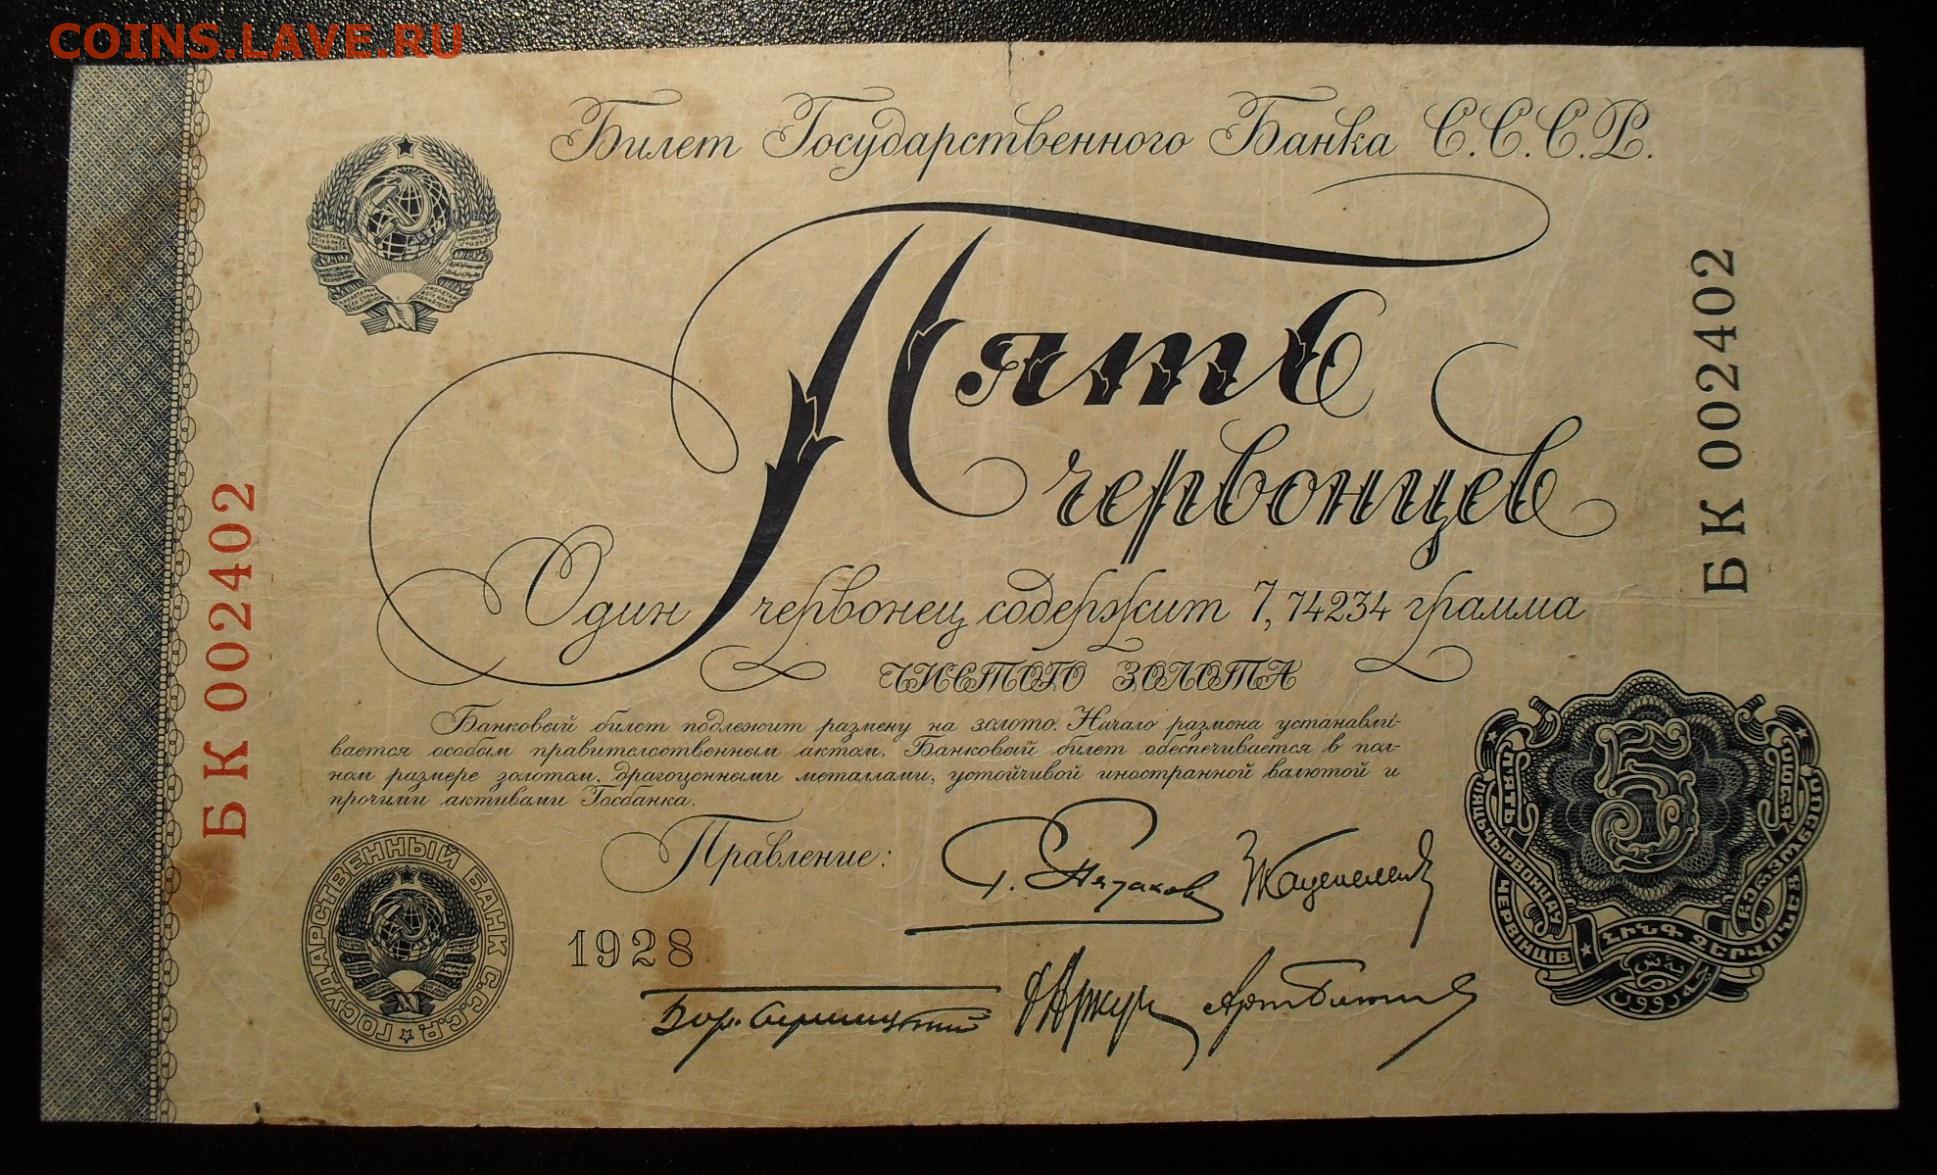 COINS.LAVE.RU
Билет Государственного Банка С.С.С.Р.
Пять
червонцев
Один червонец содержит 7,74234 грамма
ЧИСТОГО ЗОЛОТА
Банковый билет подлежит размену на золото. Начало размена устанавли-
вается особым правительственным актом. Банковый билет обеспечивается в пол-
ном размере золотом, драгоценными металлами, устойчивой иностранной валютой и
прочими активами Госбанка.
Правление:
1928
БК 002402
БК 002402
ГОСУДАРСТВЕННЫЙ БАНК С.С.С.Р.
5
ПЯТЬ
ПЯЦЬ ЧЫРВОНЦАЎ
ЧЕРВІНЦІВ
ՀԻՆԳ ՉԵՐՎՈՆԵՑ